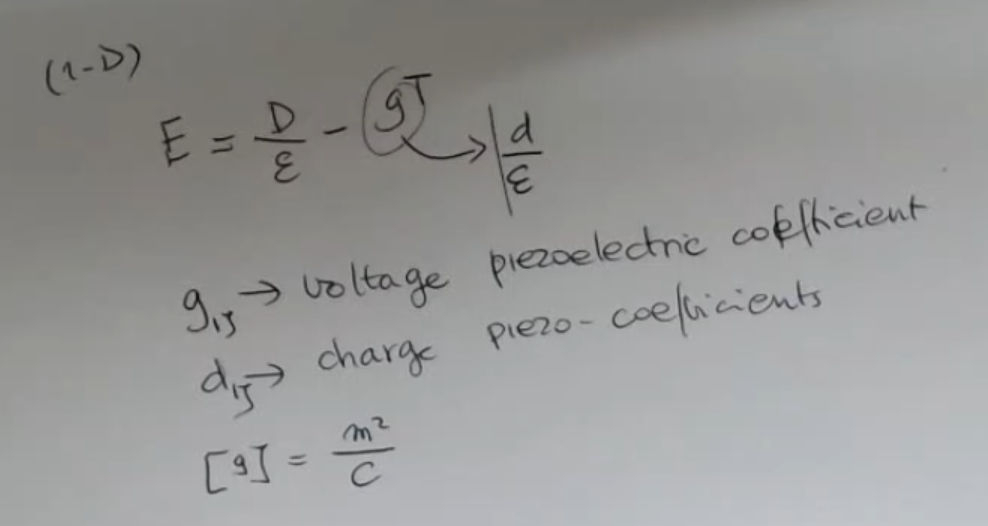 (1-D)
E = D/ε - gT → d/ε
gij → voltage piezoelectric coefficient
dij → charge piezo-coefficients
[g] = m²/C